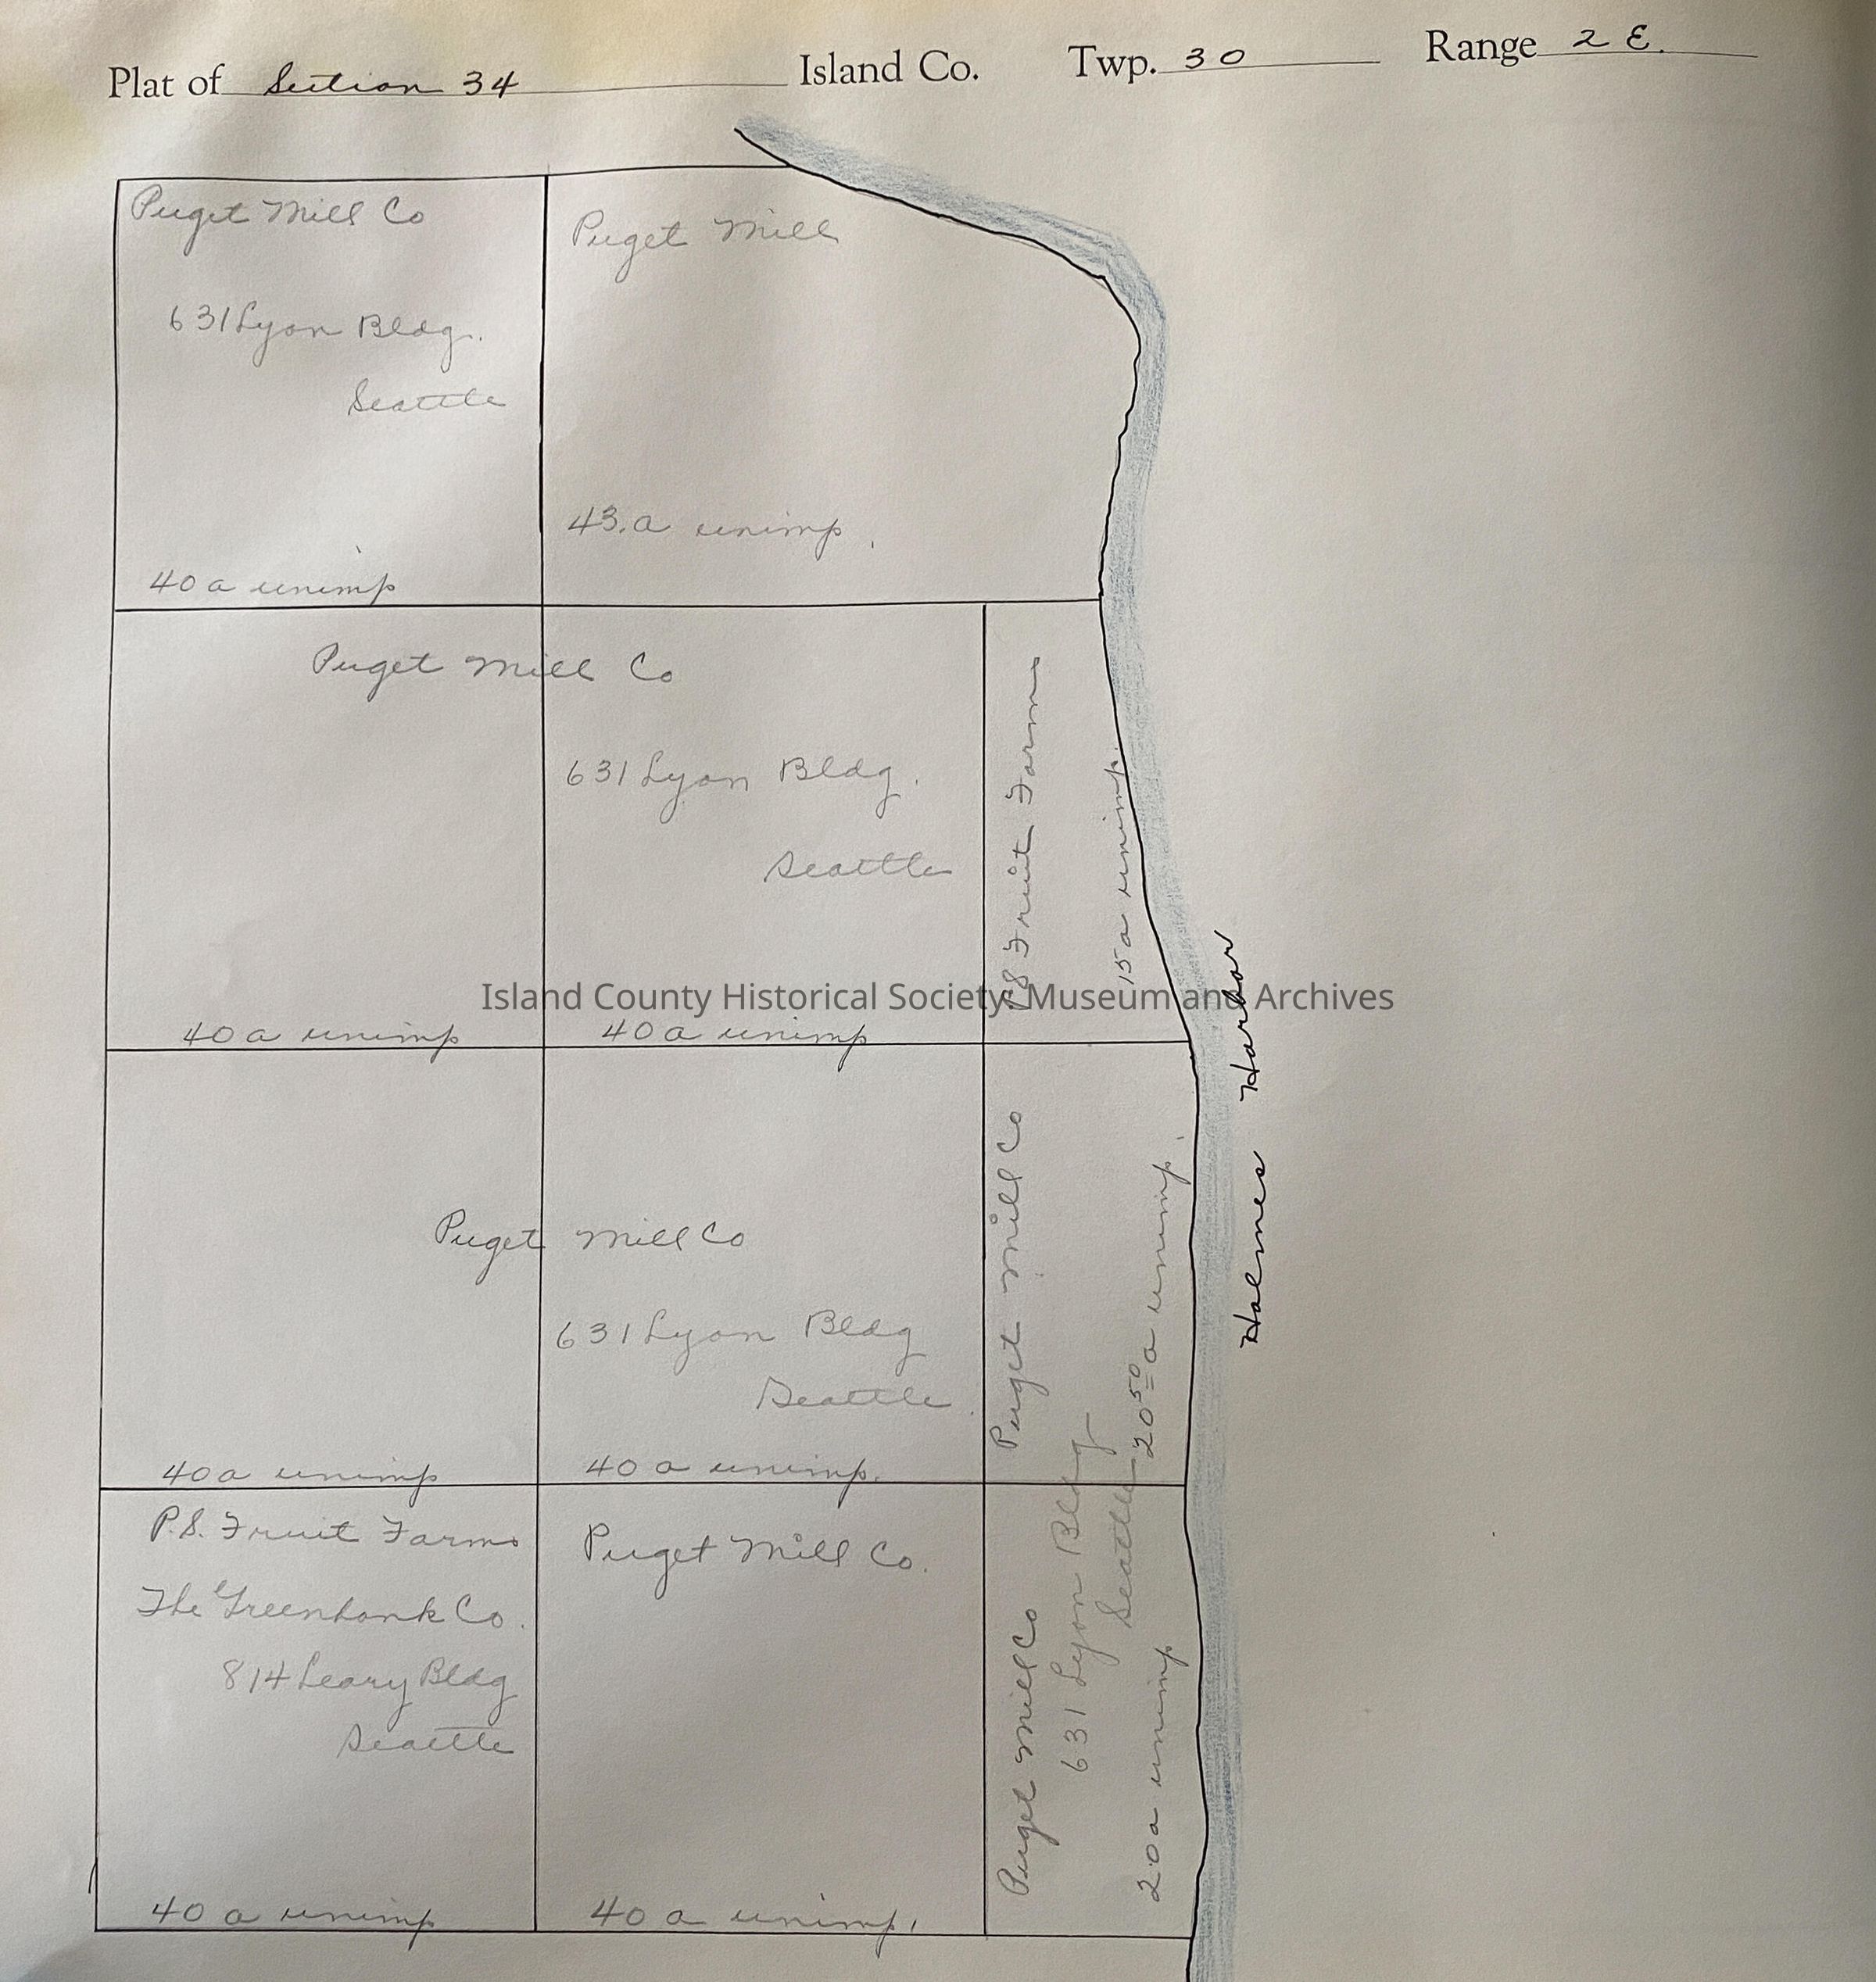 Plat of Section 34 Island Co. Twp. 30 Range 2 E.
Puget Mill Co
631 Lyon Bldg.
Seattle
40 a unimp
Puget Mill
43.a unimp.
Puget Mill Co
631 Lyon Bldg.
Seattle
40 a unimp
40 a unimp
P.S Fruit Farms
15 a unimp.
Island County Historical Society, Museum and Archives
Holmes Harbor
Puget Mill Co
631 Lyon Bldg
Seattle.
40 a unimp
40 a unimp.
Puget Mill Co
20 50 a unimp.
P.S. Fruit Farms
The Greenbank Co.
814 Leary Bldg
Seattle
40 a unimp
Puget Mill Co.
40 a unimp.
Puget Mill Co
631 Lyon Bldg
Seattle
20 a unimp